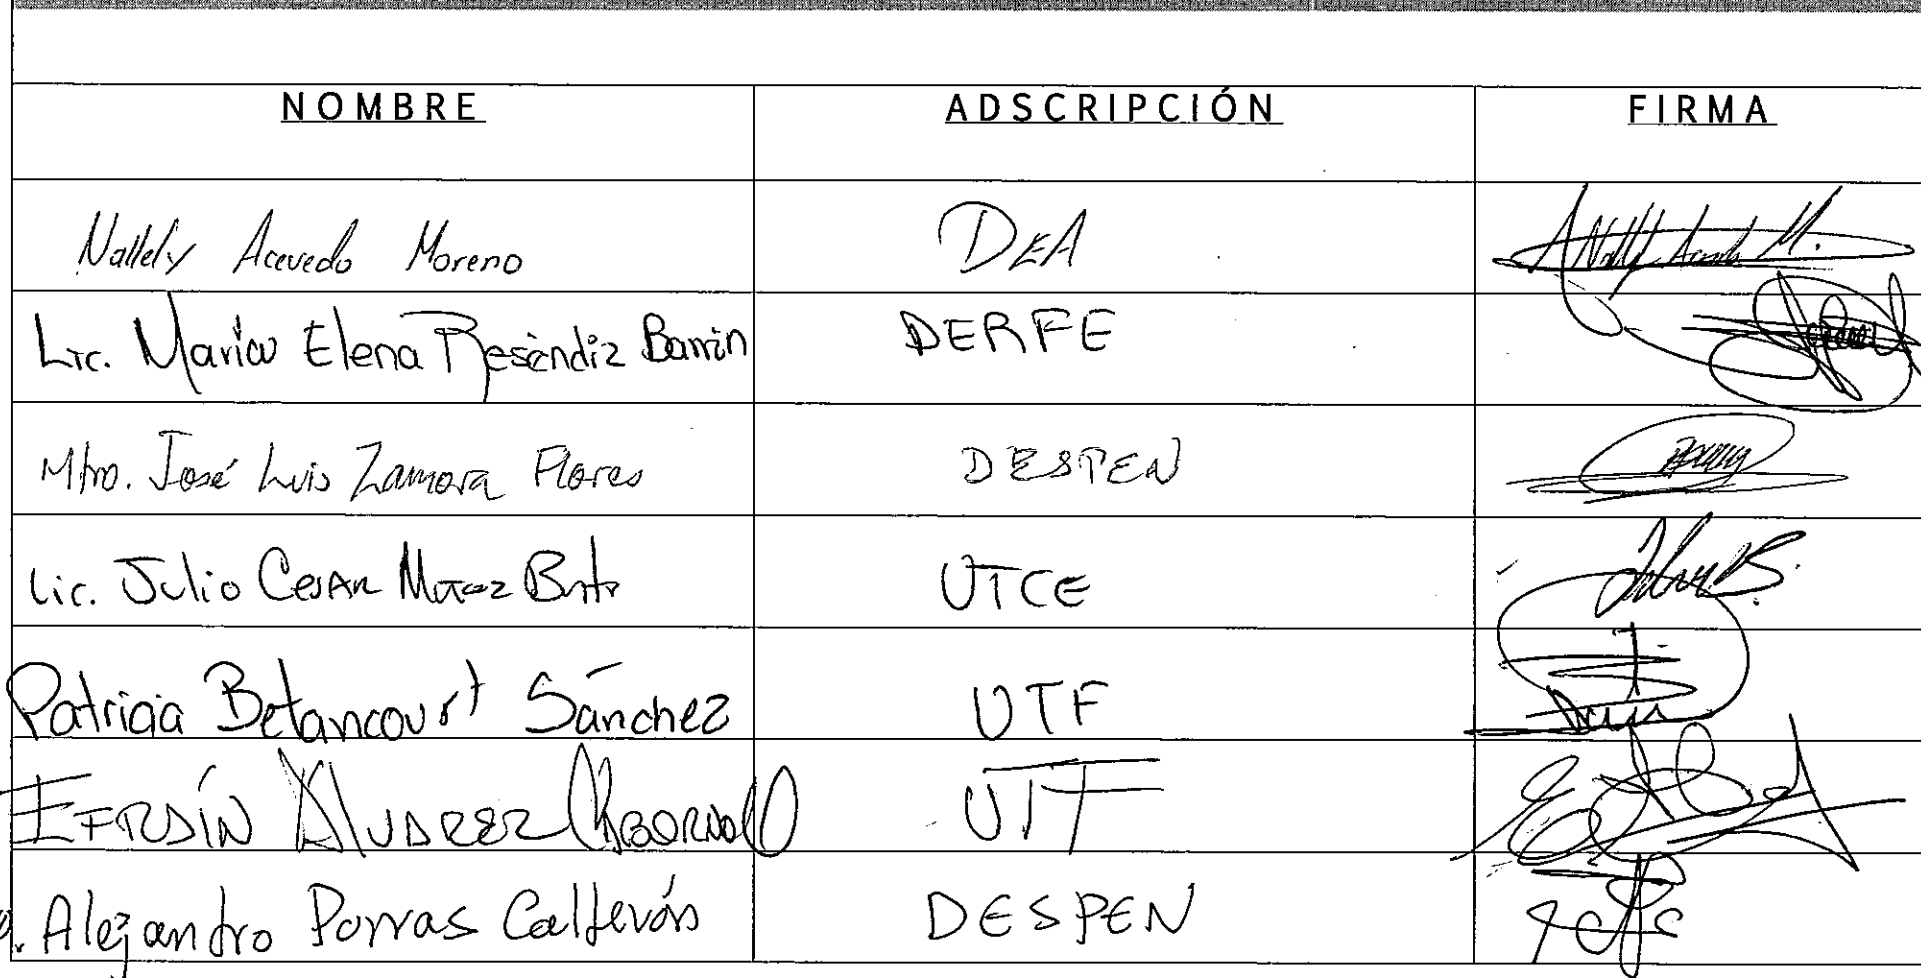 NOMBRE ADSCRIPCIÓN FIRMA
Nallely Acevedo Moreno DEA Nallely Acevedo M.
Lic. María Elena Reséndiz Barrin DERFE
Mtro. José Luis Zamora Flores DESPEN
Lic. Julio Cesar UTCE
Patricia Betancourt Sánchez UTF
Efraín Alvarez UTF
Alejandro Porras DESPEN